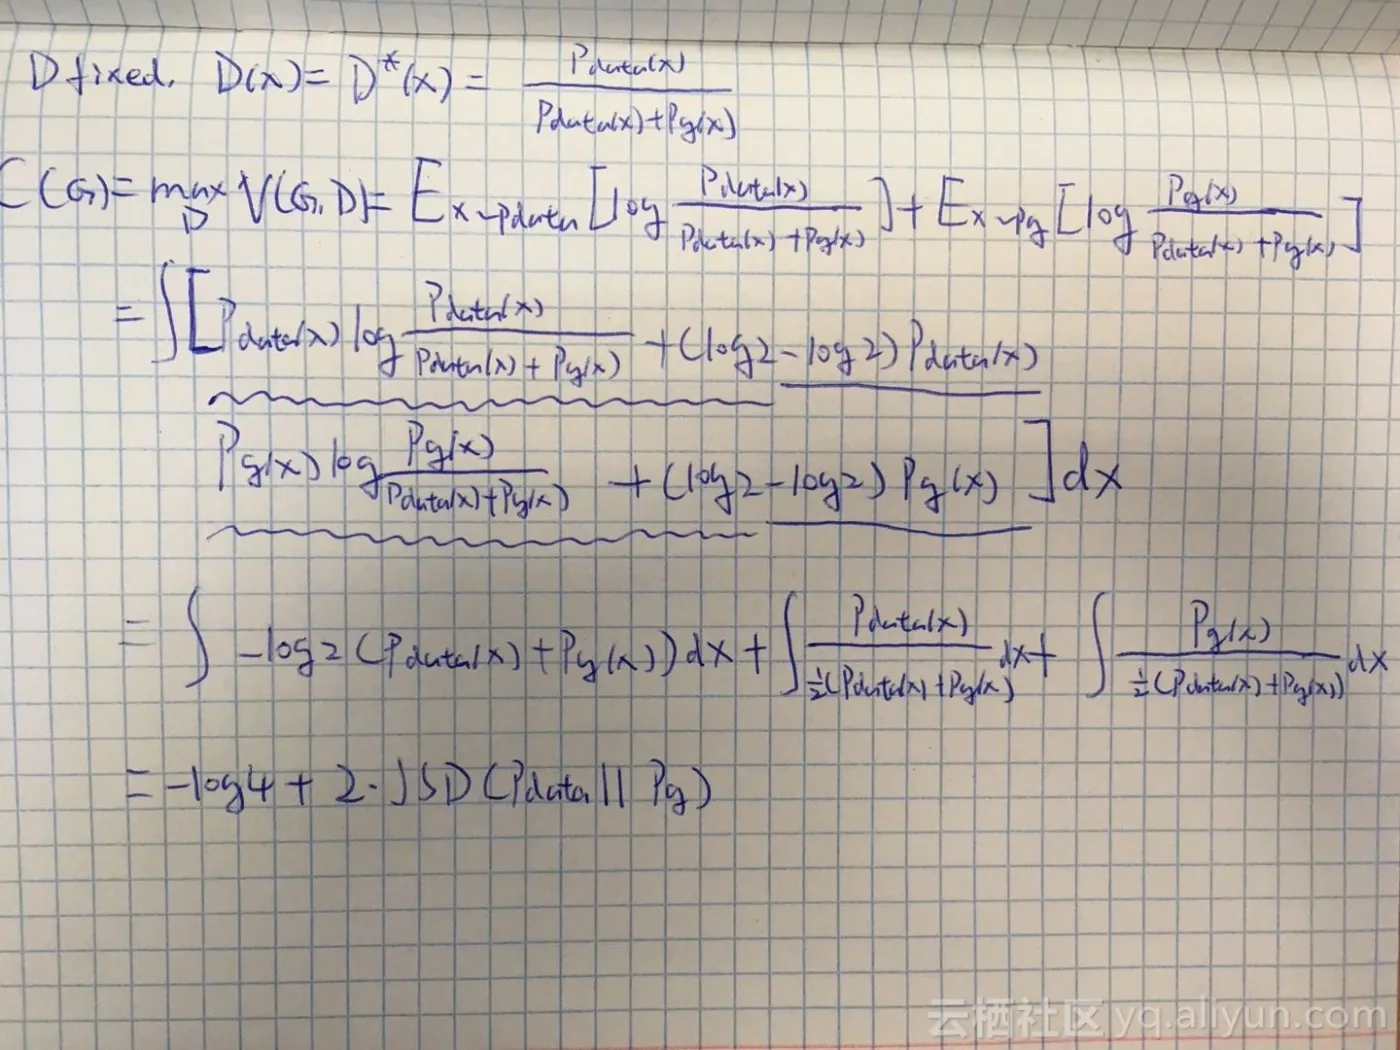 D fixed. D(x) = D*(x) = Pdata(x) / Pdata(x)+Pg(x)
C(G) = max_D V(G,D) = E_x~Pdata [log Pdata(x) / Pdata(x)+Pg(x)] + E_x~Pg [log Pg(x) / Pdata(x)+Pg(x)]
= ∫[Pdata(x) log Pdata(x) / Pdata(x)+Pg(x) + (log2 - log2) Pdata(x)
Pg(x) log Pg(x) / Pdata(x)+Pg(x) + (log2 - log2) Pg(x)] dx
= ∫ -log2 (Pdata(x)+Pg(x)) dx + ∫ Pdata(x) / ½(Pdata(x)+Pg(x) dx + ∫ Pg(x) / ½(Pdata(x)+Pg(x)) dx
= -log4 + 2·JSD(Pdata || Pg)
云栖社区 yq.aliyun.com